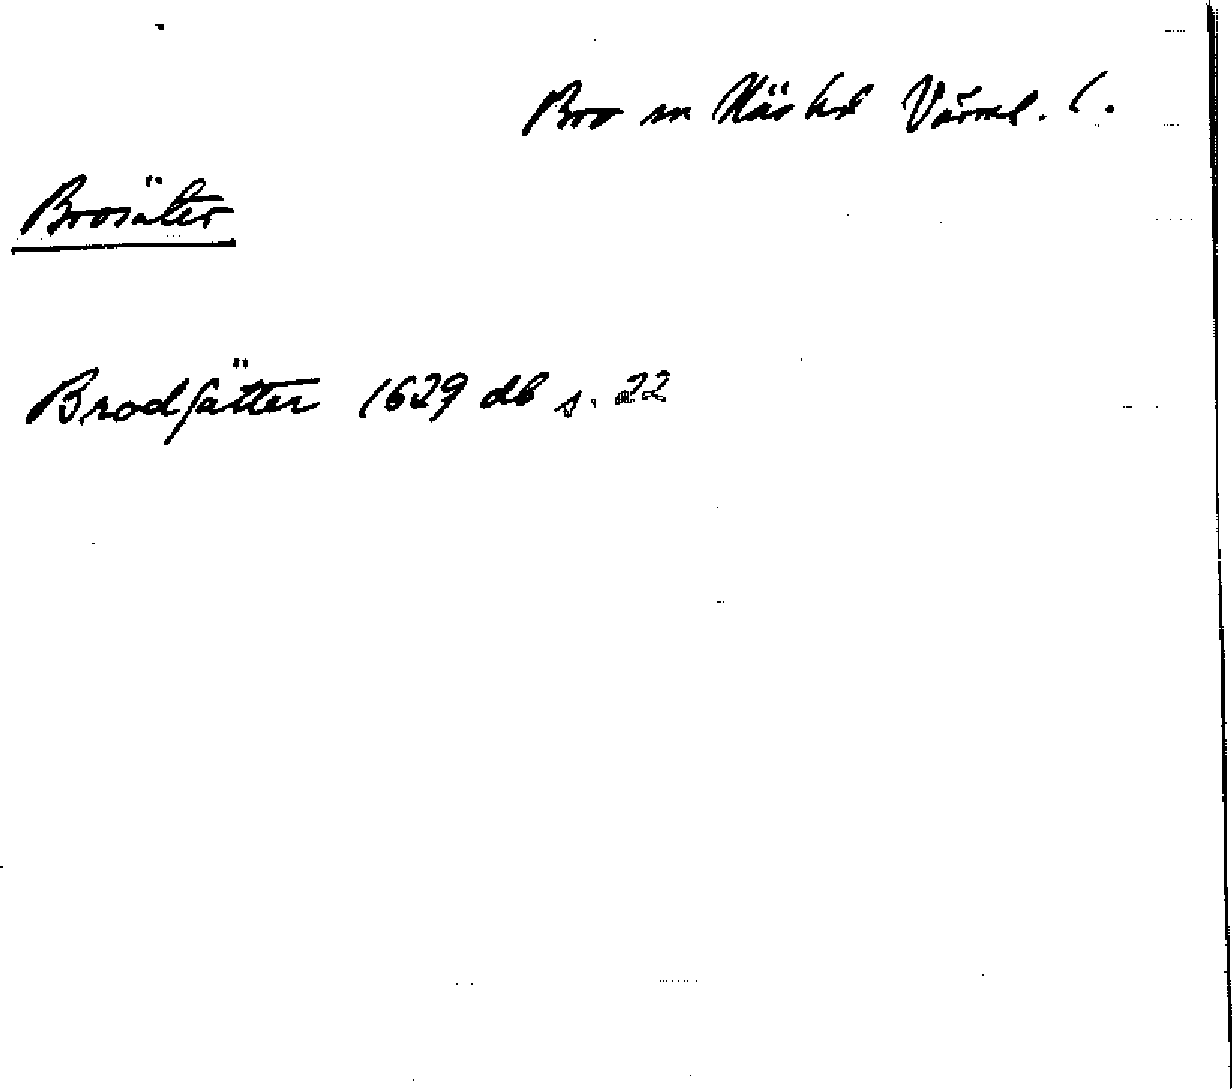 Bro sn Näs hd Värml. l.
Brosäter
Brodsätter 1629 db s. 22